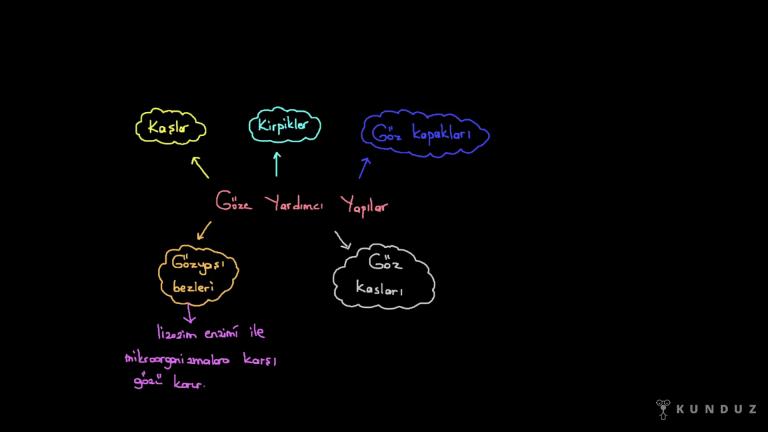 Kaşlar
Kirpikler
Göz kapakları
Göze Yardımcı Yapılar
Gözyaşı
bezleri
Göz
kasları
lizozim enzimi ile
mikroorganizmalara karşı
gözü korur.
KUNDUZ